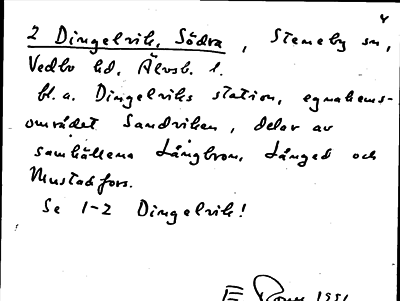 4
2 Dingelvik, Södra, Steneby sn,
Vedbo hd, Älvsb. l.
bl.a. Dingelviks station, egnahems-
området Sandviken, delar av
samhällena Långbron, Långed och
Mustadfors.
Se 1-2 Dingelvik!
E 1991